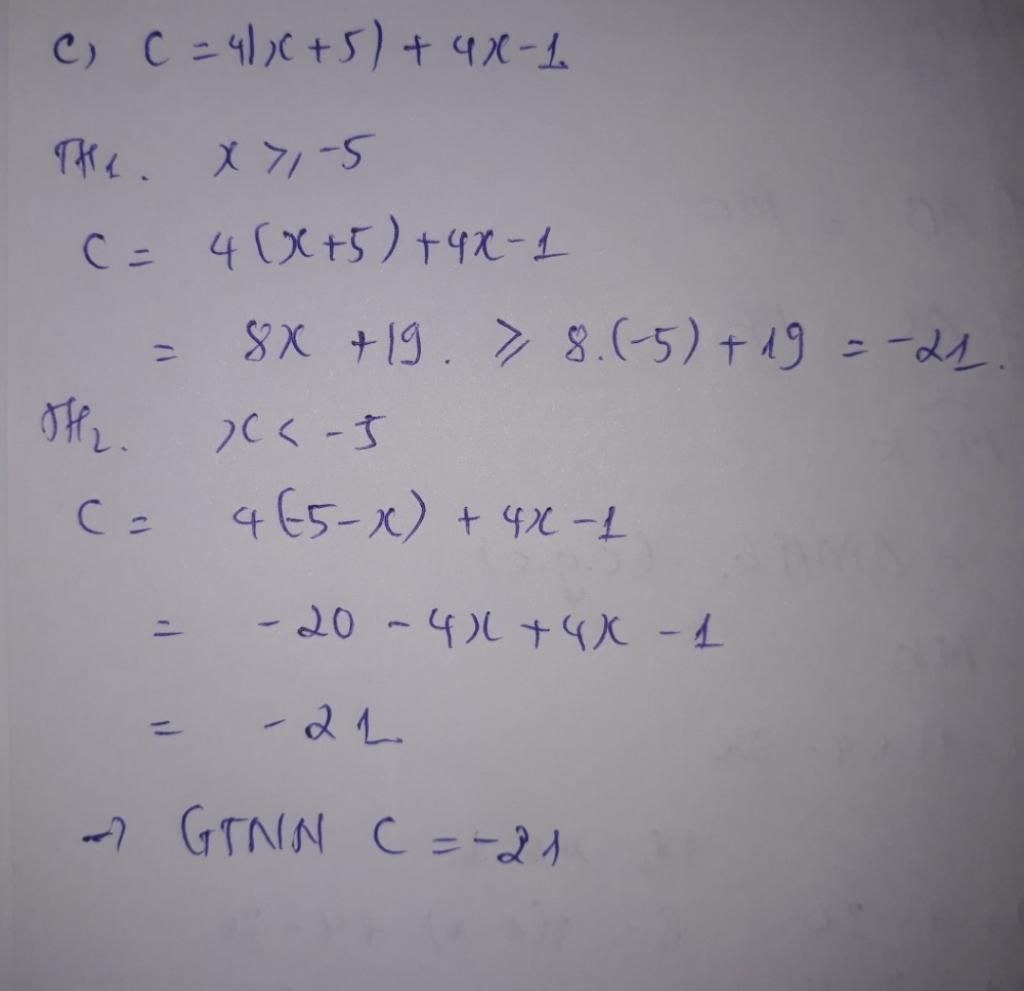 c) C = 4|x+5| + 4x-1
TH1. x ≥ -5
C = 4(x+5) + 4x-1
= 8x + 19. ≥ 8.(-5) + 19 = -21.
TH2. x < -5
C = 4(-5-x) + 4x-1
= -20 - 4x + 4x - 1
= -21
→ GTNN C = -21